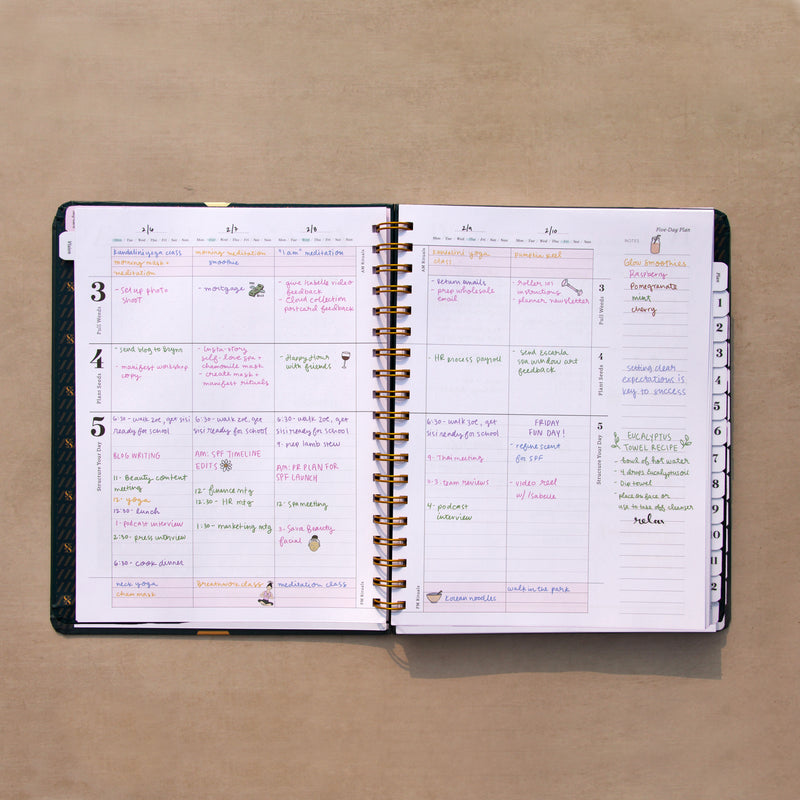 2/6
2/7
2/8
Mon Tue Wed Thu Fri Sat Sun
Mon Tue Wed Thu Fri Sat Sun
Mon Tue Wed Thu Fri Sat Sun
kundalini yoga class
morning mask +
meditation
morning meditation
smoothie
"I am" meditation
3
Full Weeds
- Set up photo
shoot
- mortgage
- give Isabelle video
feedback
- Cloud collection
postcard feedback
4
Plant Seeds
- send blog to Brynn
- manifest workshop
copy
- insta-story
self-love spa +
chamomile mask
- create mask +
manifest rituals
- Happy Hour
with friends
5
Structure Your Day
6:30 - walk zoe, get sisi
ready for school
BLOG WRITING
11 - Beauty content
meeting
12 - yoga
12:30 - lunch
1 - podcast interview
2:30 - press interview
6:30 - cook dinner
6:30 - walk zoe, get
sisi ready for school
AM: SPF TIMELINE
EDITS
12 - finance mtg
12:30 - HR mtg
1:30 - marketing mtg
6:30 - walk zoe, get
sisi ready for school
9 - prep lamb stew
AM: PR PLAN FOR
SPF LAUNCH
12 - spa meeting
3 - Sava Beauty
facial
neck yoga
chew mask
breathwork class
meditation class
2/9
2/10
Five-Day Plan
Mon Tue Wed Thu Fri Sat Sun
Mon Tue Wed Thu Fri Sat Sun
AM Rituals
kundalini yoga
class
pumpkin peel
- Return emails
- prep wholesale
email
- roller 101
instructions
- planner newsletter
3
Full Weeds
- HR process payroll
- Send Escarla
spa window art
feedback
4
Plant Seeds
6:30 - walk zoe, get
sisi ready for school
9 - Thai meeting
11-3: team reviews
4: podcast
interview
FRIDAY
FUN DAY!
- refine scent
for SPF
- video reel
w/ Isabelle
5
Structure Your Day
PM Rituals
Korean noodles
walk in the park
NOTES
Glow Smoothies
Raspberry
Pomegranate
mint
cherry
setting clear
expectations is
key to success
EUCALYPTUS
TOWEL RECIPE
- bowl of hot water
- 4 drops eucalyptus oil
- Dip towel
- place on face or
use to take off cleanser
relax
Plan
1
2
3
4
5
6
7
8
9
10
11
12